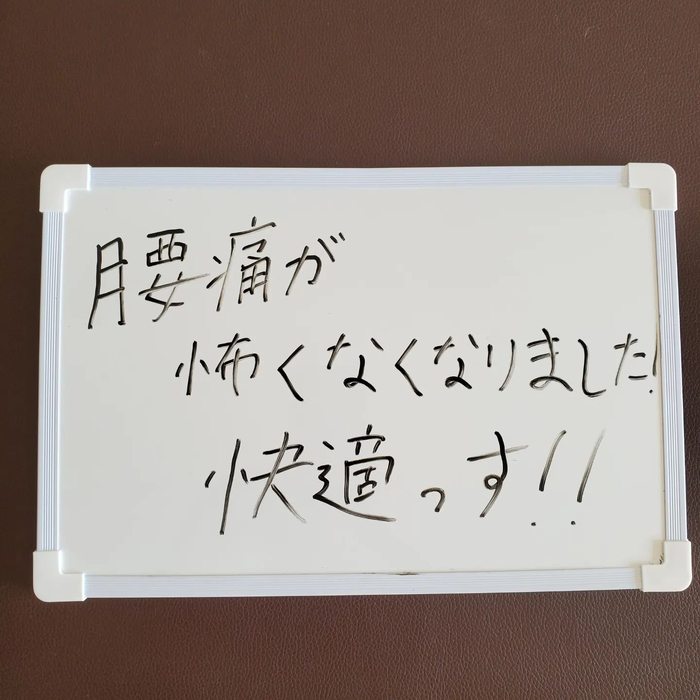 腰痛が
怖くなくなりました!
快適っす!!